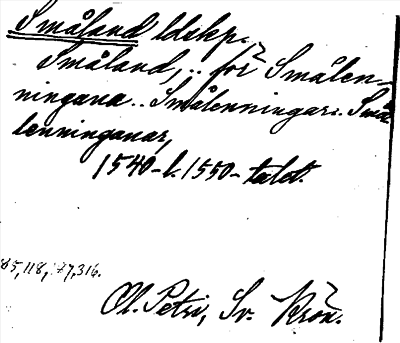 Småland ldskp.
Småland, .. för Smålen-
ningana .. Smålenningar. Små
lenninganar,
1540-l. 1550-talet.
85, 118, 177, 316.
Ol. Petri, Sv. Krön.